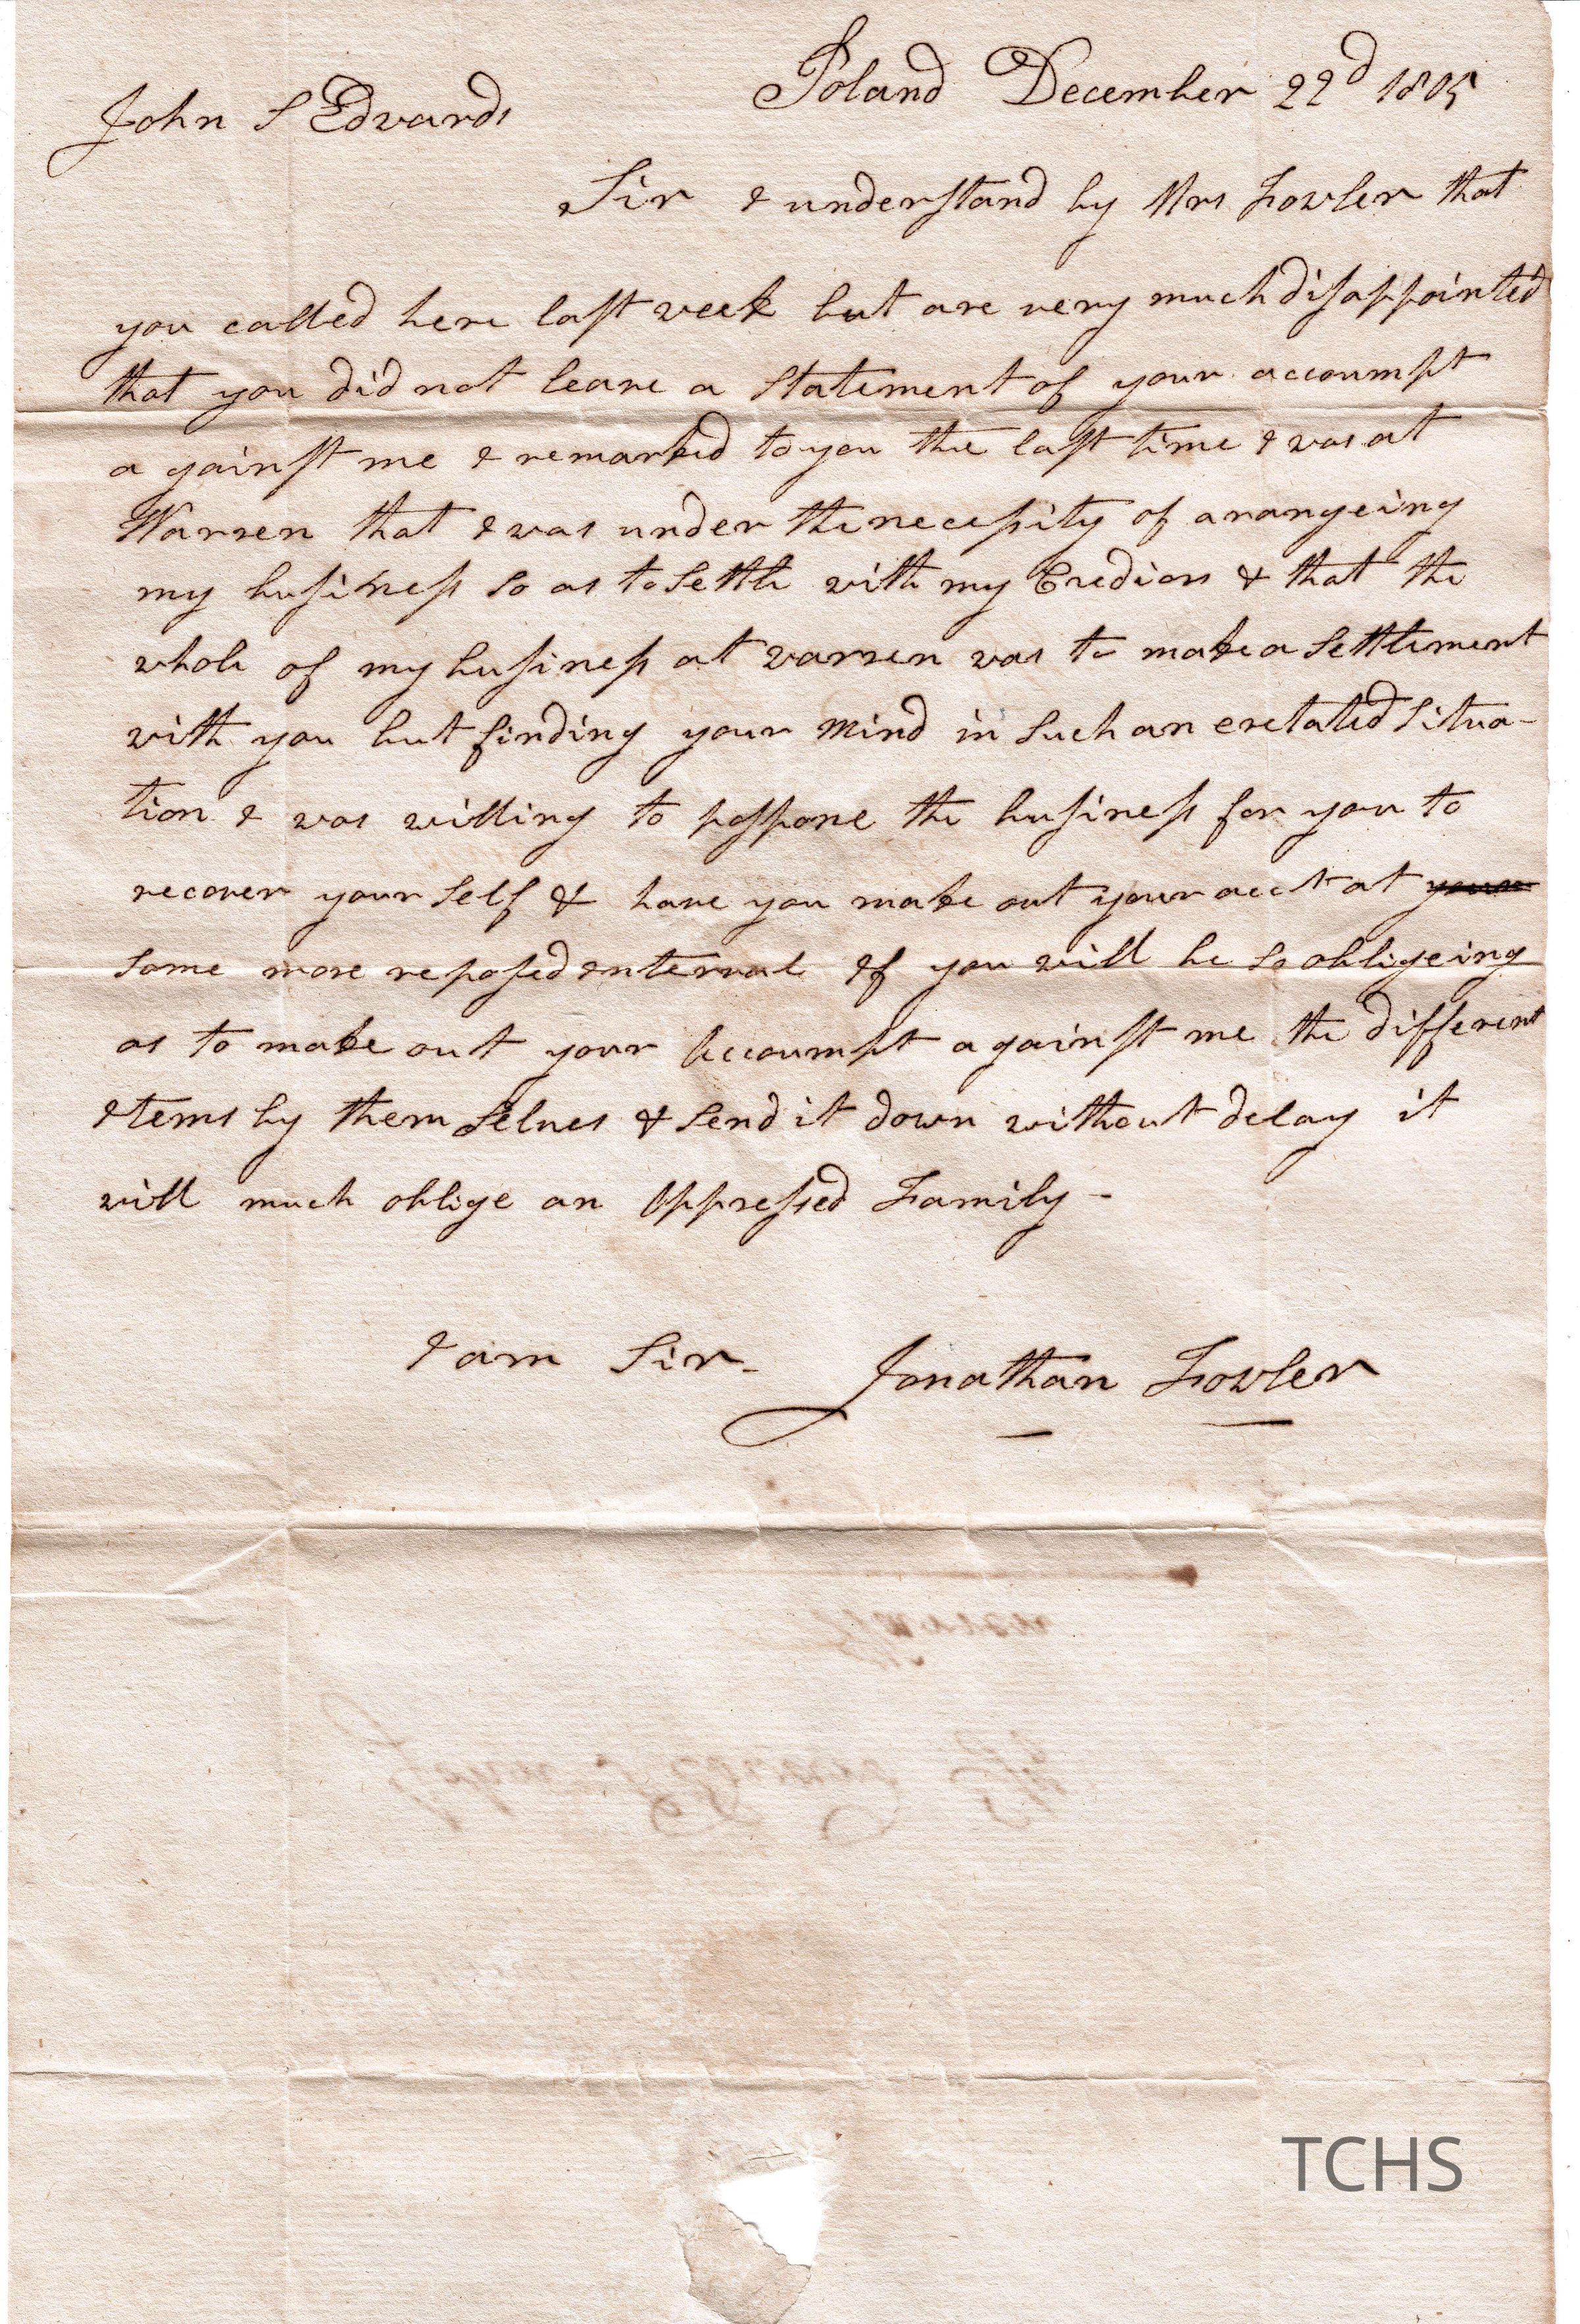 Poland December 22d 1805
John S Edwards
Sir I understand by Mrs Fowler that
you called here last week but are very much disappointed
that you did not leave a Statement of your accoumpt
a gainst me I remarked to you the last time I was at
Warren that I was under the necessity of arangeing
my business so as to Settle with my Crediors & that the
whole of my business at warren was to make a Settlement
with you but finding your mind in Such an Situa-
tion I was willing to pospone the business for you to
recover your Self & have you make out your acct at your
Some more reposed Interval If you will be So obligeing
as to make out your Accoumpt against me the different
Items by them Selves & Send it down without delay it
will much oblige an Oppressed Family -
I am Sir - Jonathan Fowler
TCHS